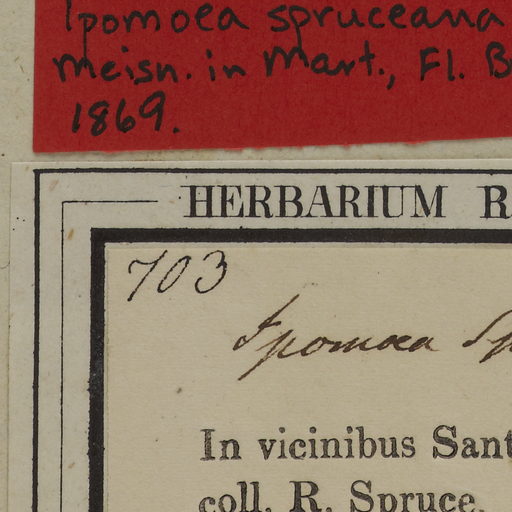 Ipomoea spruceana
meisn. in Mart., Fl. B
1869.
HERBARIUM R
703
Ipomoea Sp
In vicinibus Sant
coll. R. Spruce.